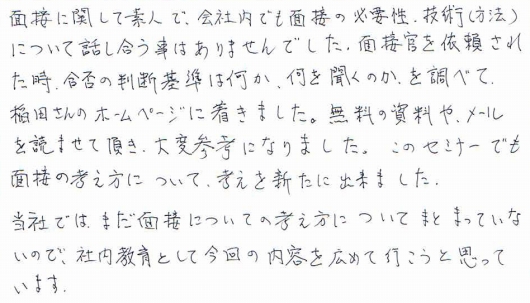 面接に関して素人で、会社内でも面接の必要性、技術(方法)
について話し合う事はありませんでした。面接官を依頼され
た時、合否の判断基準は何か、何を聞くのか、を調べて、
稲田さんのホームページに着きました。無料の資料や、メール
を読ませて頂き、大変参考になりました。このセミナーでも
面接の考え方について、考えを新たに出来ました。
当社では、まだ面接についての考え方についてまとまっていな
いので、社内教育として今回の内容を広めて行こうと思って
います。